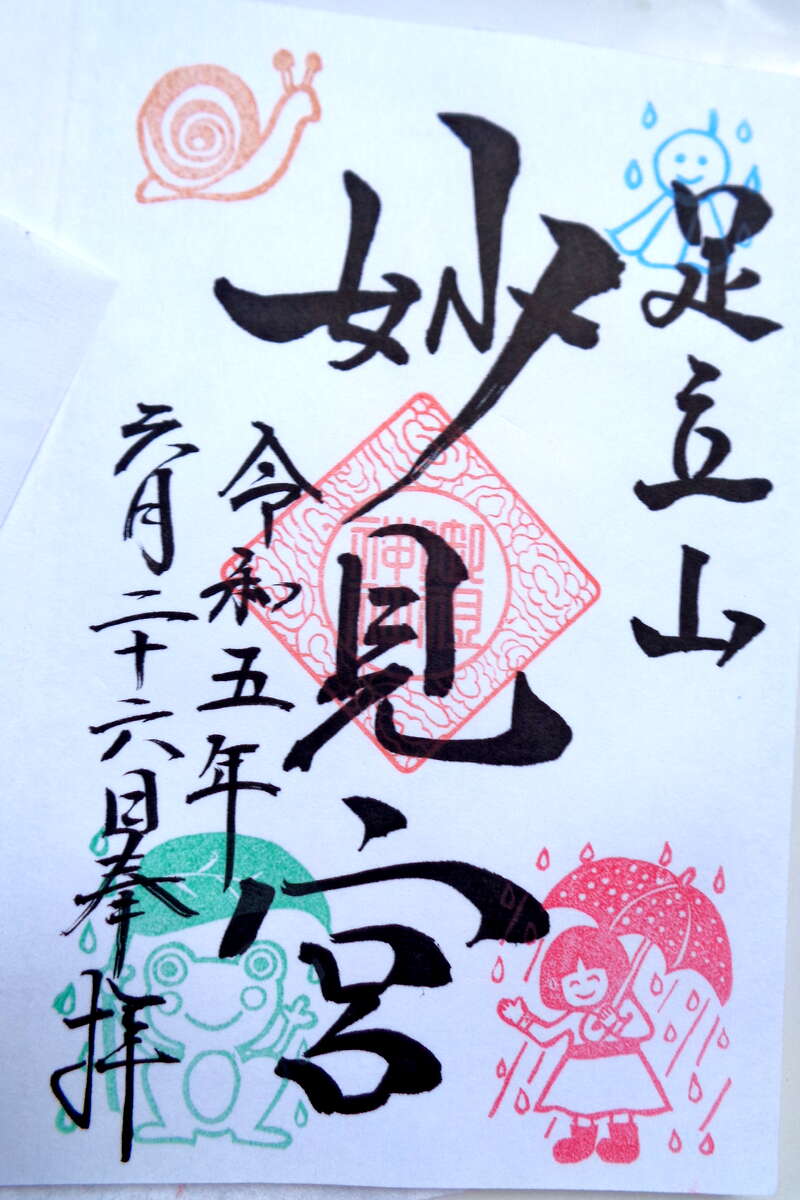 足立山
妙見宮
令和五年
六月二十六日奉拝